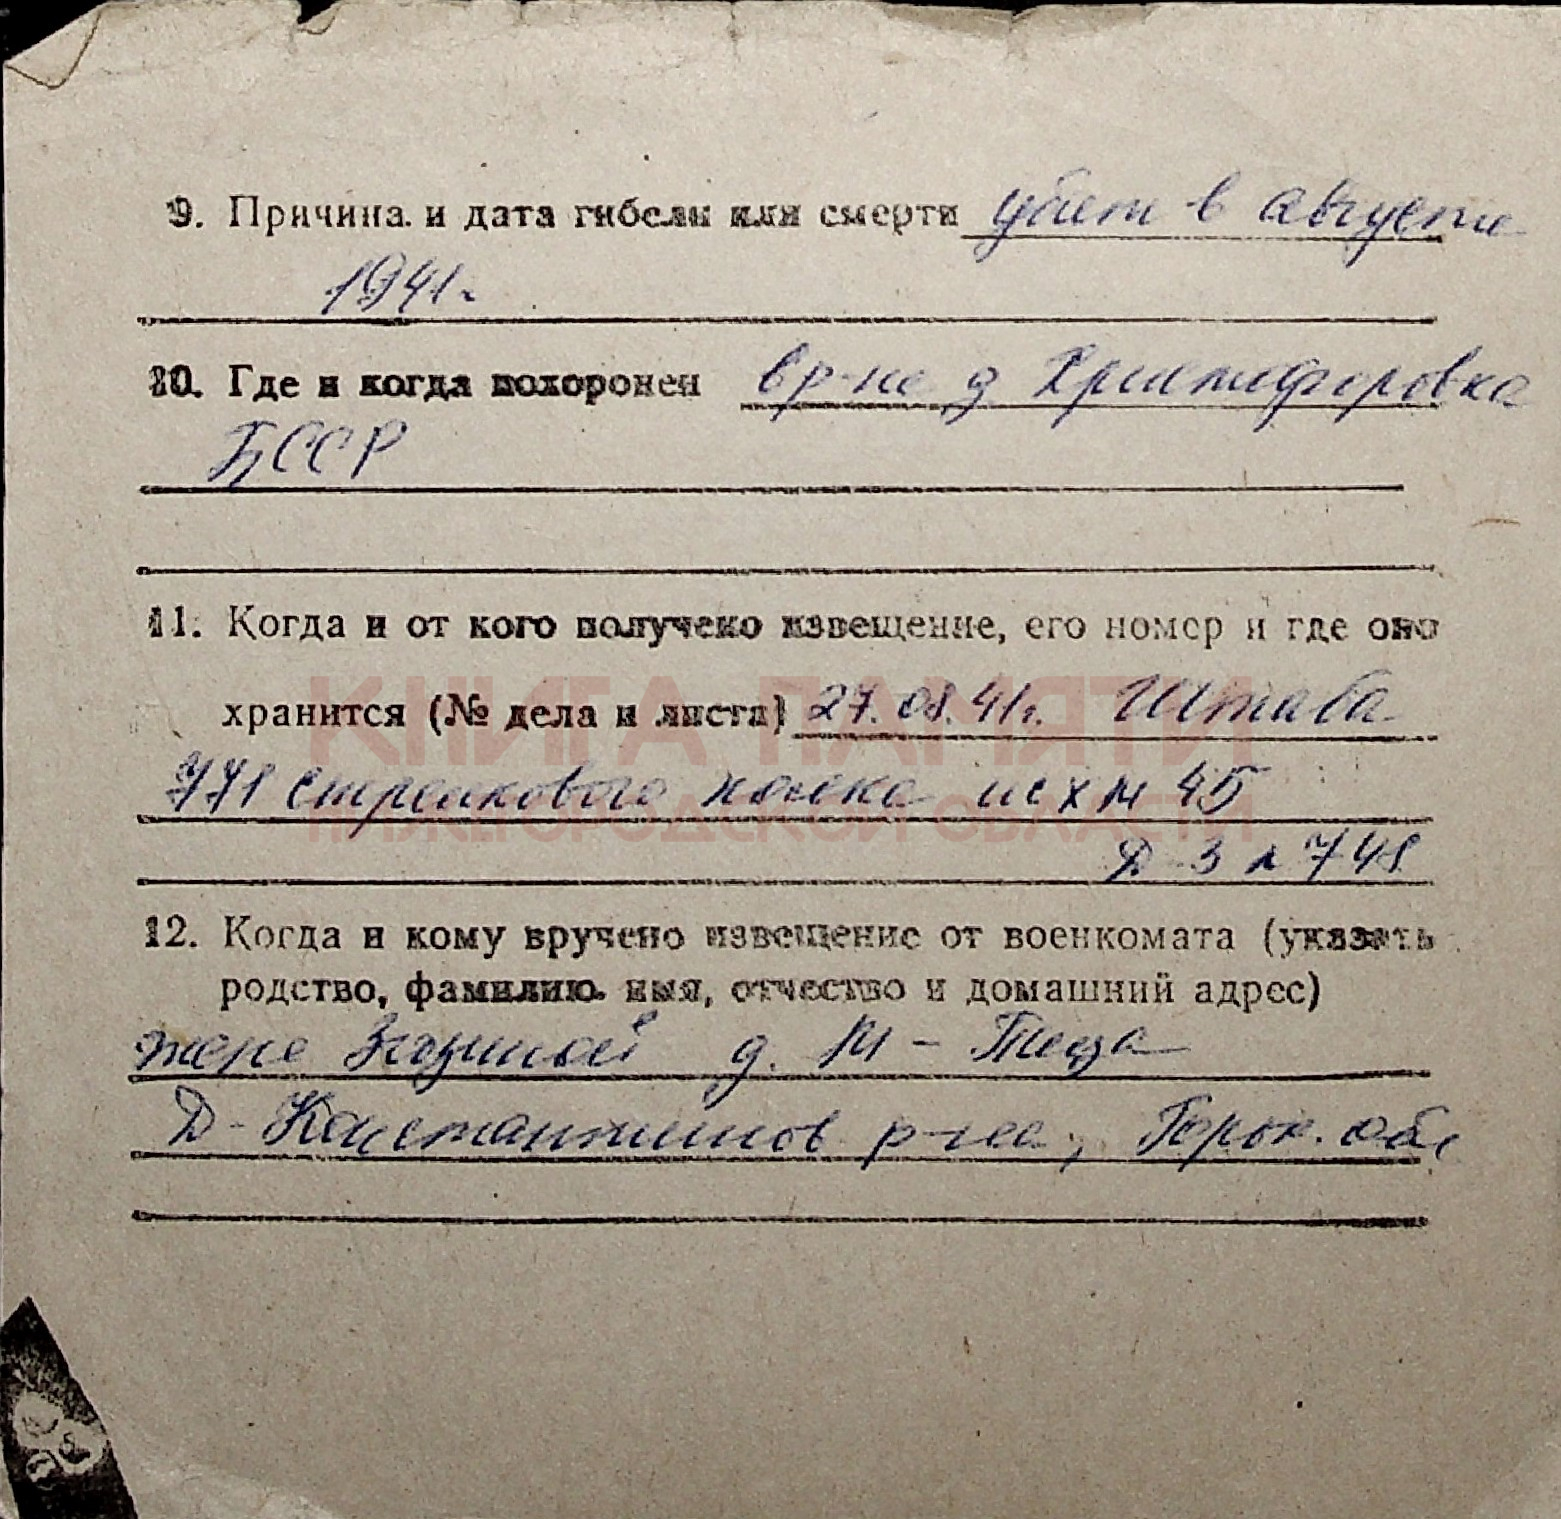 9. Причина и дата гибели или смерти убит в августе
1941г.
10. Где и когда похоронен в р-не д Христофоровка
БССР
11. Когда и от кого получено извещение, его номер и где оно
хранится (№ дела и листа) 27.08.41г. Штаба
771 стрелкового полка исх № 45
Д-3 л 748
12. Когда и кому вручено извещение от военкомата (указать
родство, фамилию имя, отчество и домашний адрес)
жене д. М-Теза
Д-Константинов р-на, Горьк. обл
КНИГА ПАМЯТИ
НИЖЕГОРОДСКОЙ ОБЛАСТИ